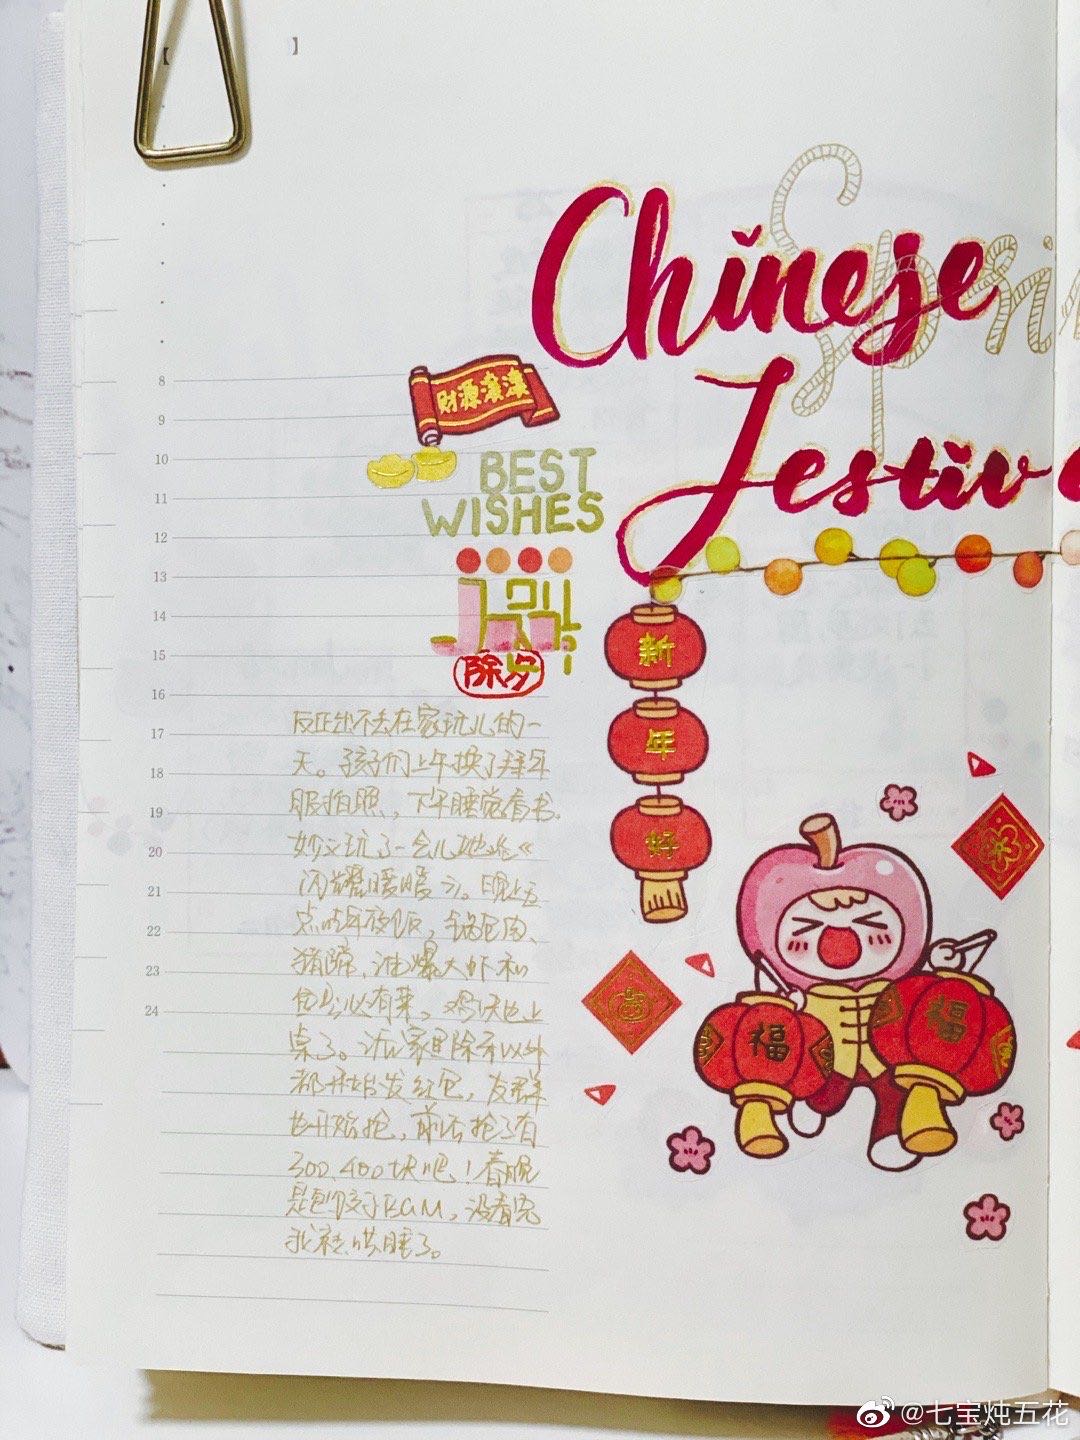 【 】
Chinese
Sp
Festiv
8
9
10
11
12
13
14
15
16
17
18
19
20
21
22
23
24
財源滚滚
BEST
WISHES
除夕
新
年
好
福
福
反正出不去在家玩儿的一
天。孩子们上午换了拜年
服拍照，下午睡觉看书。
妙文玩了一会儿她《
闪耀暖暖》。晚上五
点吃年夜饭，锅包肉、
猪蹄、油爆大虾和
有菜，鸡
桌了。家里除以外
都开始发红包，友群
也开始抢，前后抢了有
300、400块吧！春晚
是包饺子BGM，没看完
我哄睡了。
@七宝炖五花